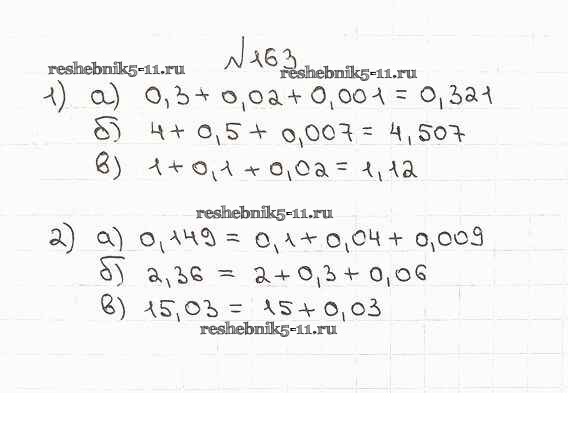 №163
reshebnik5-11.ru reshebnik5-11.ru
1) а) 0,3 + 0,02 + 0,001 = 0,321
б) 4 + 0,5 + 0,007 = 4,507
в) 1 + 0,1 + 0,02 = 1,12
reshebnik5-11.ru
2) а) 0,149 = 0,1 + 0,04 + 0,009
б) 2,36 = 2 + 0,3 + 0,06
в) 15,03 = 15 + 0,03
reshebnik5-11.ru